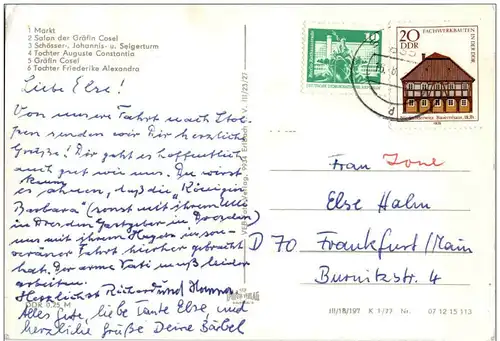 1 Markt
2 Salon der Gräfin Cosel
3 Schösser-, Johannis- u. Seigerturm
4 Tochter Auguste Constantia
5 Gräfin Cosel
6 Tochter Friederike Alexandra
Liebe Else!
Von unserer Fahrt nach Stol-
pen senden wir Dir herzliche
Grüße! Dir geht es hoffentlich
auch gut wie uns. Du wirst
kaum
es ahnen, daß die "Königin
Barbara" (sonst mit ihrem
in Dresden Gastgeber in Dresden)
uns mit ihrem Wagen in sou-
veräner Fahrt hierher gebracht
hat. Der arme Vati muß leider
arbeiten.
Herzlichst Richard und Hanna
Alles Gute, liebe Tante Else, und
herzliche Grüße Deine Bärbel
DDR 0,25 M
9934 Erlbach V. III/23/27
10
DEUTSCHE DEMOKRATISCHE
20
DDR
FACHWERKBAUTEN
IN DER DDR
Bauernhaus, 18. Jh.
1978
Frau Ione
Else Halm
D 70 Frankfurt/Main
Burnitzstr. 4
III/18/197 K 1/77 Nr. 07 12 15 113